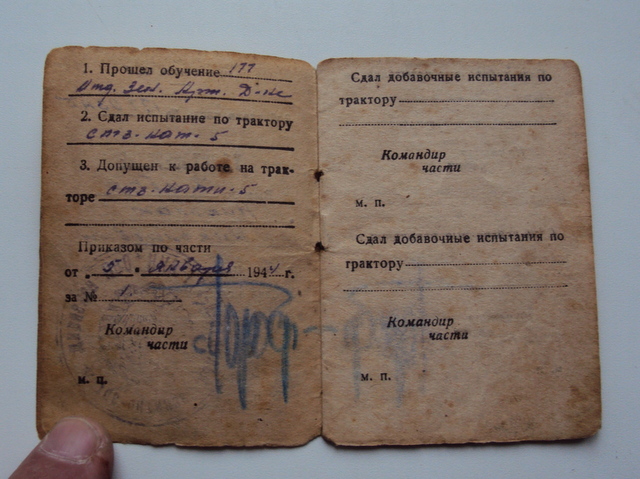 1. Прошел обучение 177
Отд. Зен. Арт. Д-не
2. Сдал испытание по трактору
стз-нати-5
3. Допущен к работе на трак-
торе стз-нати-5
Приказом по части
от „5“ января 1944 г.
за № 1
Командир
части
м. п.
Сдал добавочные испытания по
трактору
Командир
части
м. п.
Сдал добавочные испытания по
трактору
Командир
части
м. п.